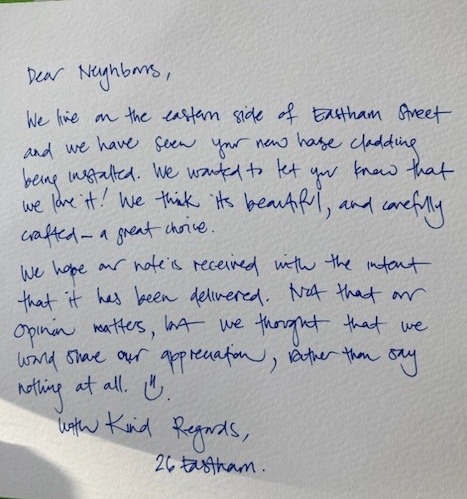 Dear Neighbors,
We live on the eastern side of Eastham Street
and we have seen your new house cladding
being installed. We wanted to let you know that
we love it! We think its beautiful, and carefully
crafted – a great choice.
We hope our note is received with the intent
that it has been delivered. Not that our
opinion matters, but we thought that we
would share our appreciation, rather than say
nothing at all.
With Kind Regards,
26 Eastham.